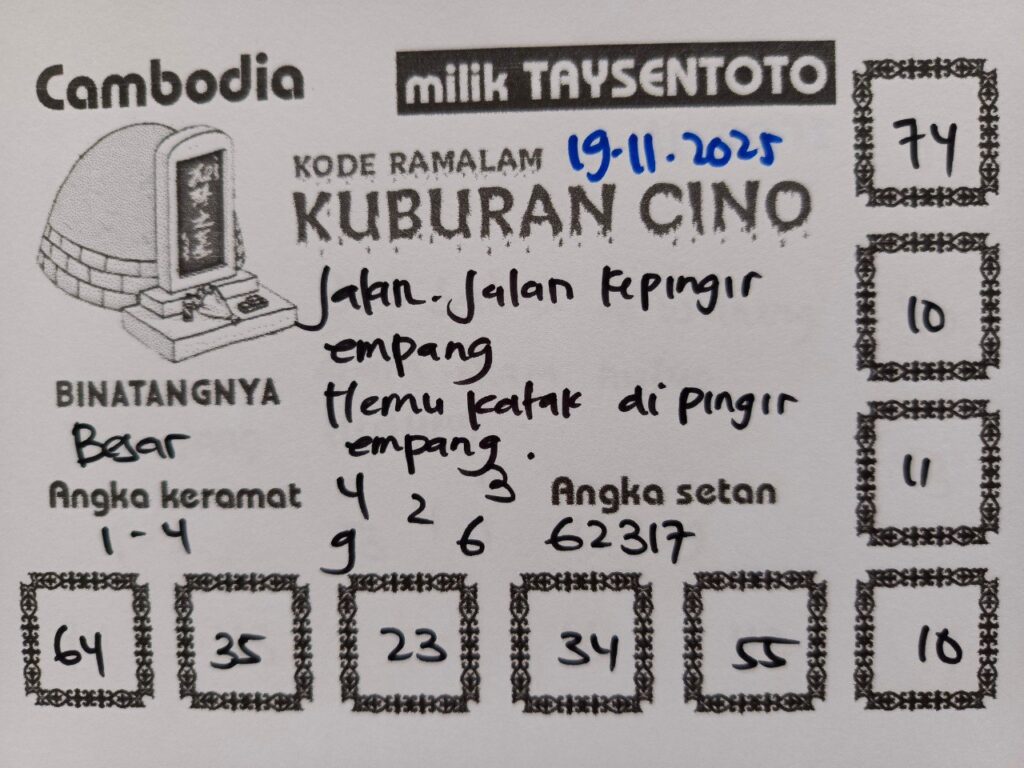 Cambodia
milik TAYSENTOTO
KODE RAMALAM 19.11.2025
KUBURAN CINO
Jalan-Jalan kepingir
empang
Hemu katak di pingir
empang.
BINATANGNYA
Besar
Angka keramat
1-4
4 2 3
9 6
Angka setan
62317
74
10
11
64 35 23 34 55 10